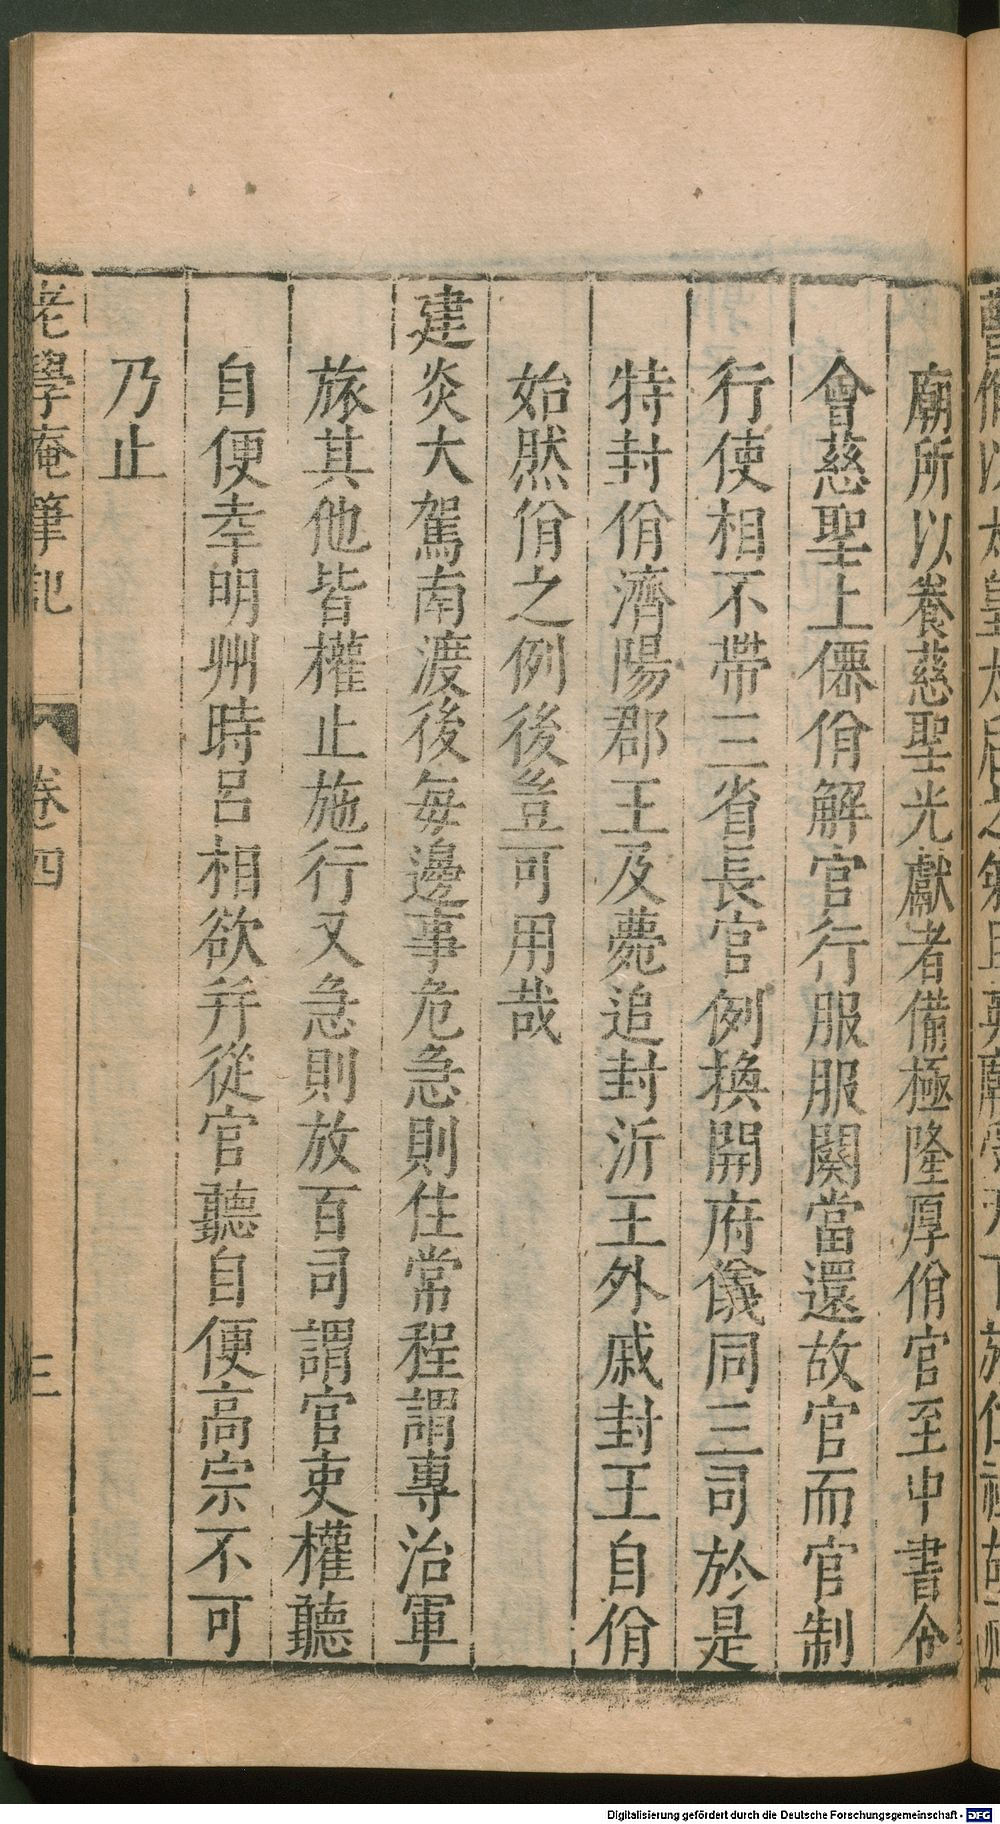 廟所以養慈聖光獻者備極隆厚佾官至中書令
會慈聖上僊佾解官行服服闋當還故官而官制
行使相不帶三省長官例換開府儀同三司於是
特封佾濟陽郡王及薨追封沂王外戚封王自佾
始然佾之例後豈可用哉
建炎大駕南渡後每邊事危急則住常程謂專治軍
旅其他皆權止施行又急則放百司謂官吏權聽
自便幸明州時呂相欲并從官聽自便高宗不可
乃止
老學庵筆記 卷四 三
Digitalisierung gefördert durch die Deutsche Forschungsgemeinschaft - DFG